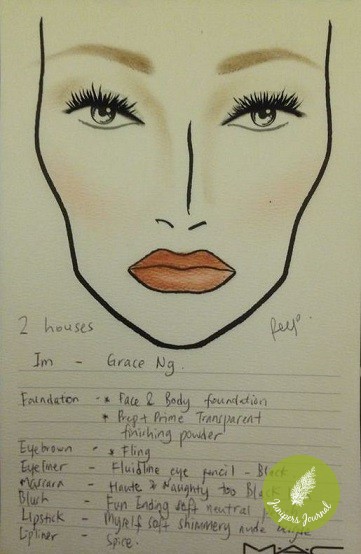 2 houses
Im - Grace Ng.
Foundation - * Face & Body foundation
* Prep + Prime Transparent
finishing powder
Eyebrown - * Fling
Eyeliner - Fluidline eye pencil - Black
Mascara - Haute & Naughty too Black
Blush - Fun Ending soft neutral
Lipstick - Myself soft shimmery nude
Lipliner - Spice.
MAC
Junipers Journal